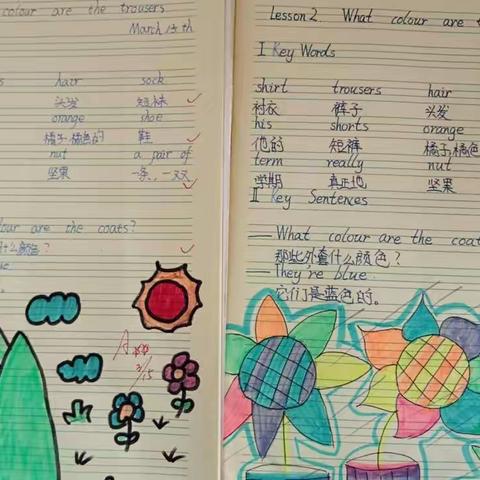 colour are the trousers
March 13th
hair sock
头发 短袜
orange shoe
橘子,橘色的 鞋
nut a pair of
坚果 一条,一双
colour are the coats?
什么颜色?
A
3/15
Lesson 2 What colour are
I Key Words
shirt trousers hair
衬衣 裤子 头发
his shorts orange
他的 短裤 橘子,橘色
term really nut
学期 真正地 坚果
II Key Sentences
— What colour are the
那些外套什么颜色?
— They're blue.
它们是蓝色的。